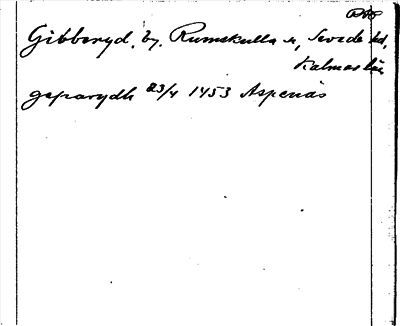 Gibberyd, by. Rumskulla sn, Sevede hd,
Kalmar län
geparydh 23/4 1453 Aspenäs